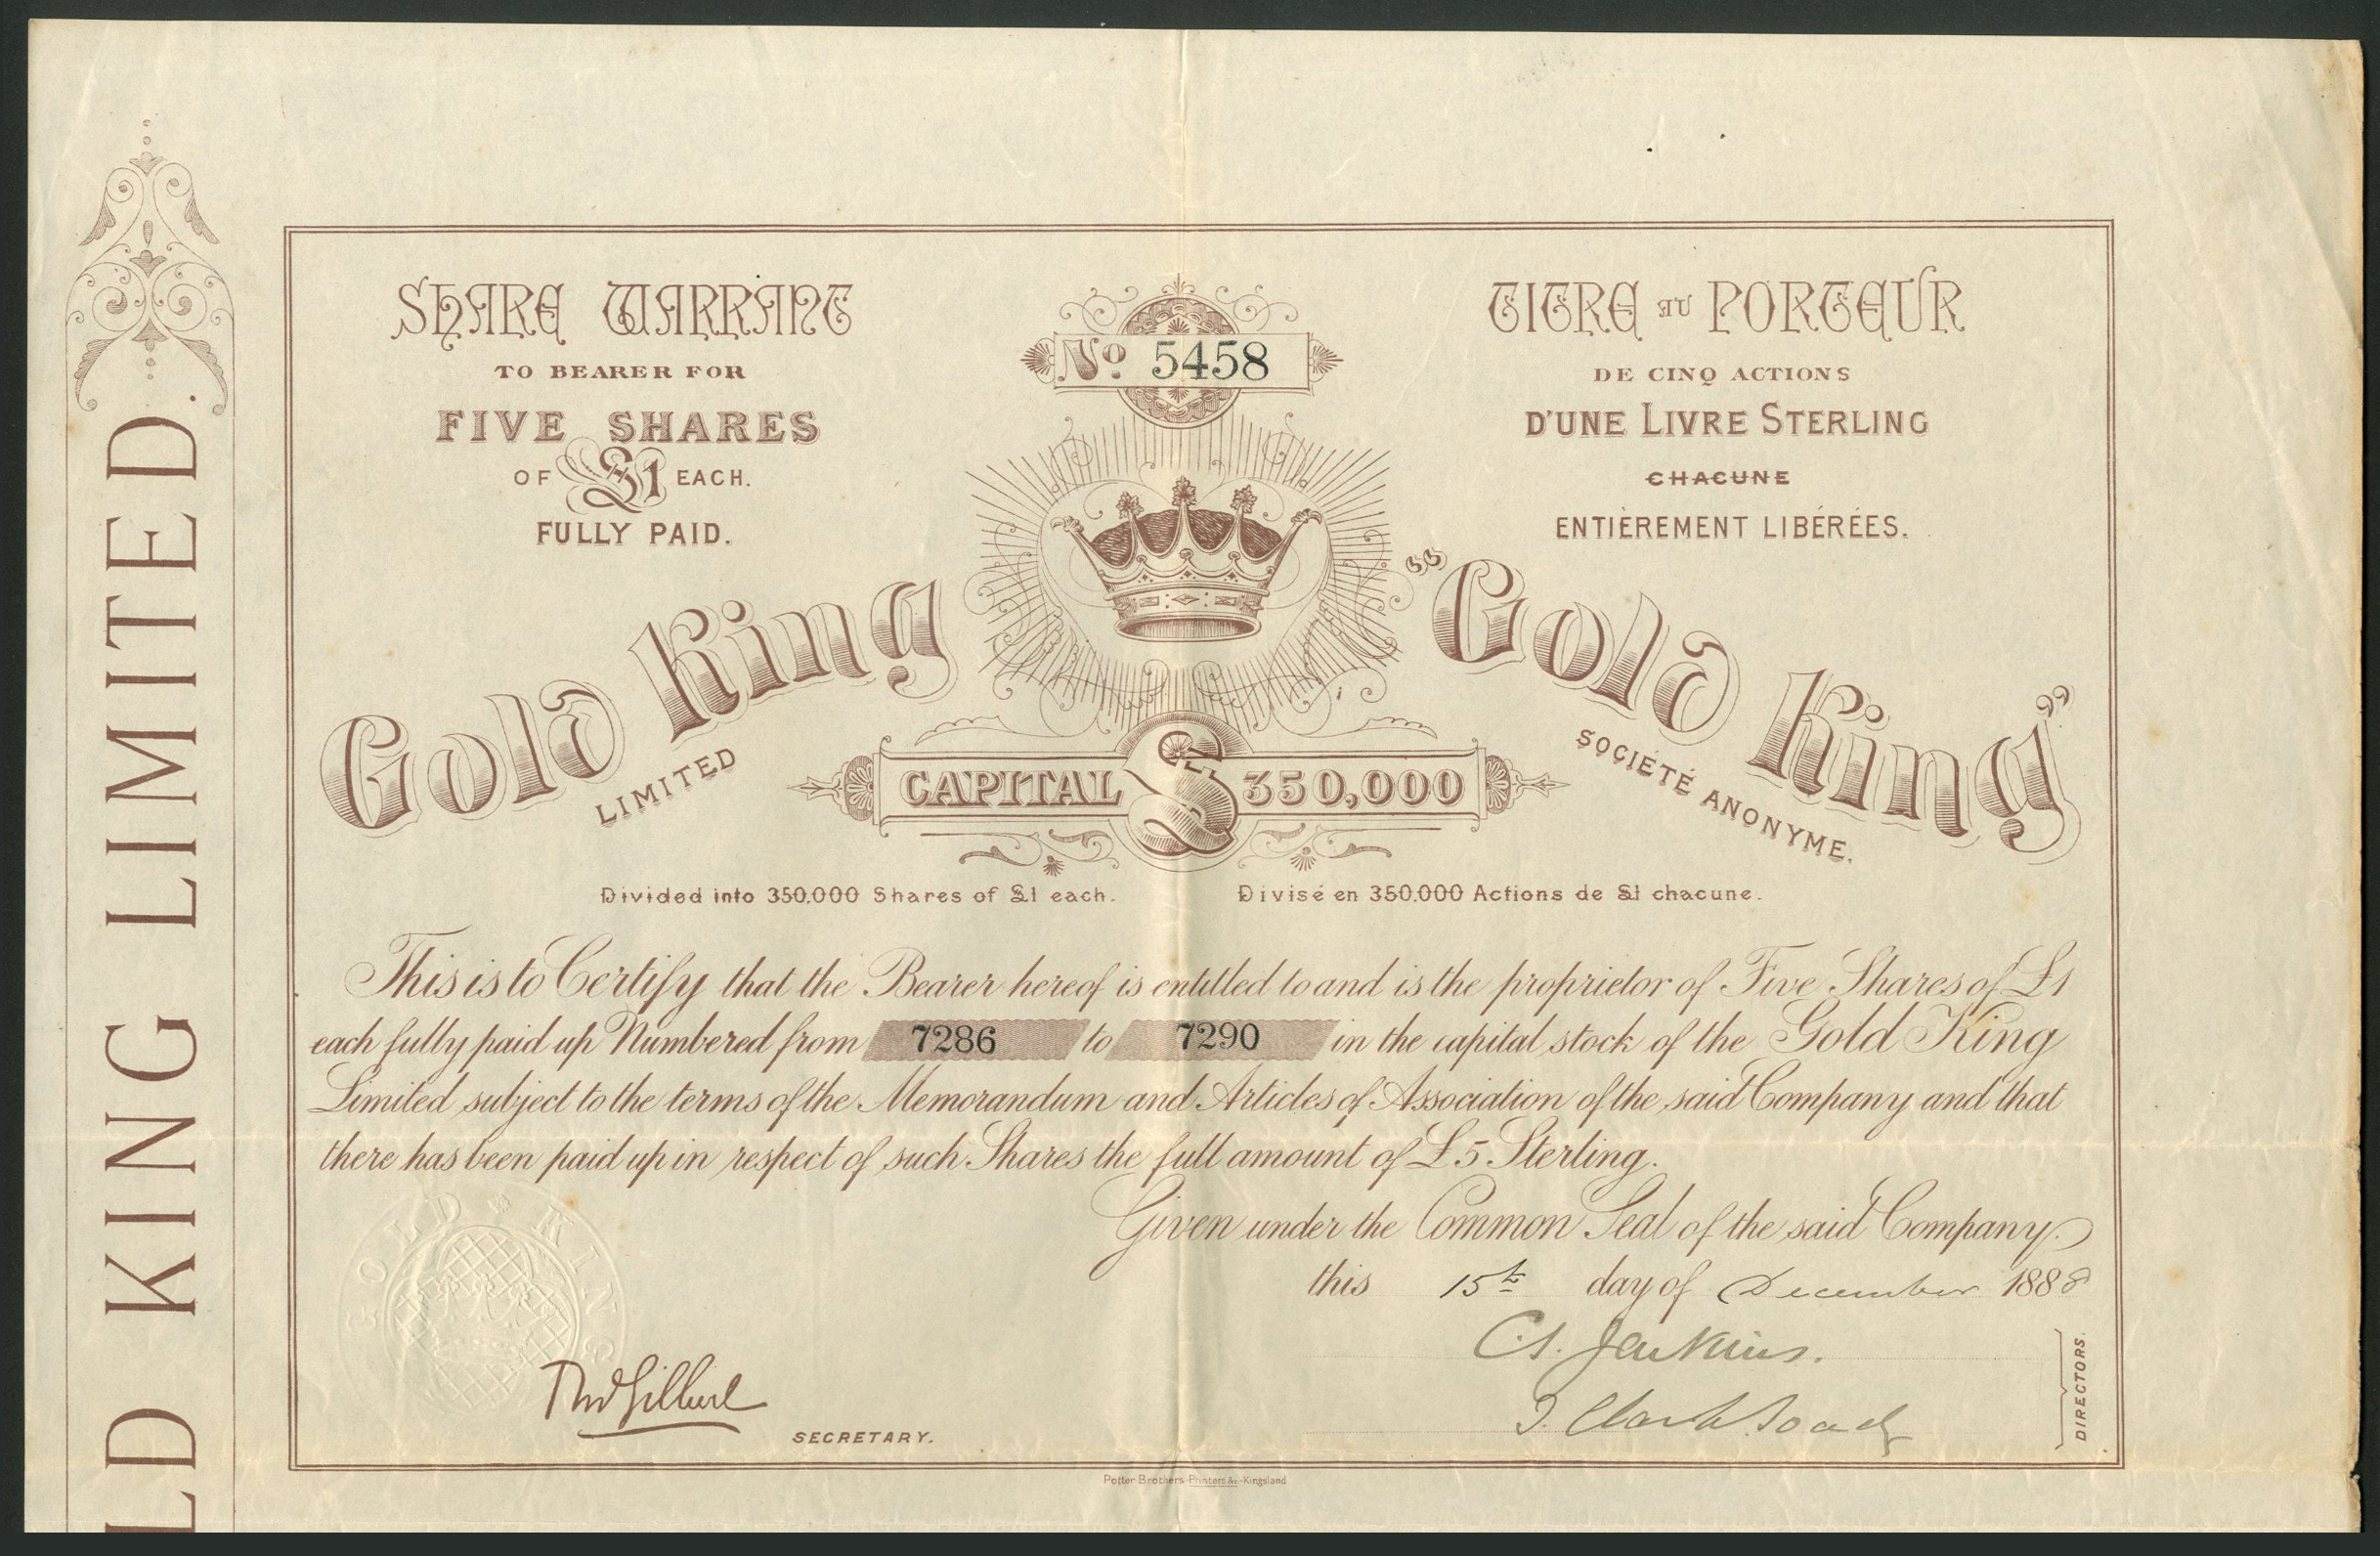 LD KING LIMITED.
SHARE WARRANT
TO BEARER FOR
FIVE SHARES
OF £1 EACH.
FULLY PAID.
No. 5458
TITRE AU PORTEUR
DE CINQ ACTIONS
D'UNE LIVRE STERLING
CHACUNE
ENTIÈREMENT LIBÉRÉES.
Gold King
LIMITED
"Gold King"
SOCIÉTÉ ANONYME.
CAPITAL £ 350,000
Divided into 350.000 Shares of £1 each.
Divisé en 350.000 Actions de £1 chacune.
This is to Certify that the Bearer hereof is entitled to and is the proprietor of Five Shares of £1
each fully paid up Numbered from 7286 to 7290 in the capital stock of the Gold King
Limited subject to the terms of the Memorandum and Articles of Association of the said Company and that
there has been paid up in respect of such Shares the full amount of £5 Sterling.
Given under the Common Seal of the said Company
this 15th day of December 1888
GOLD KING
C. Jenkins.
SECRETARY.
DIRECTORS.
Potter Brothers-Printers &c-Kingsland